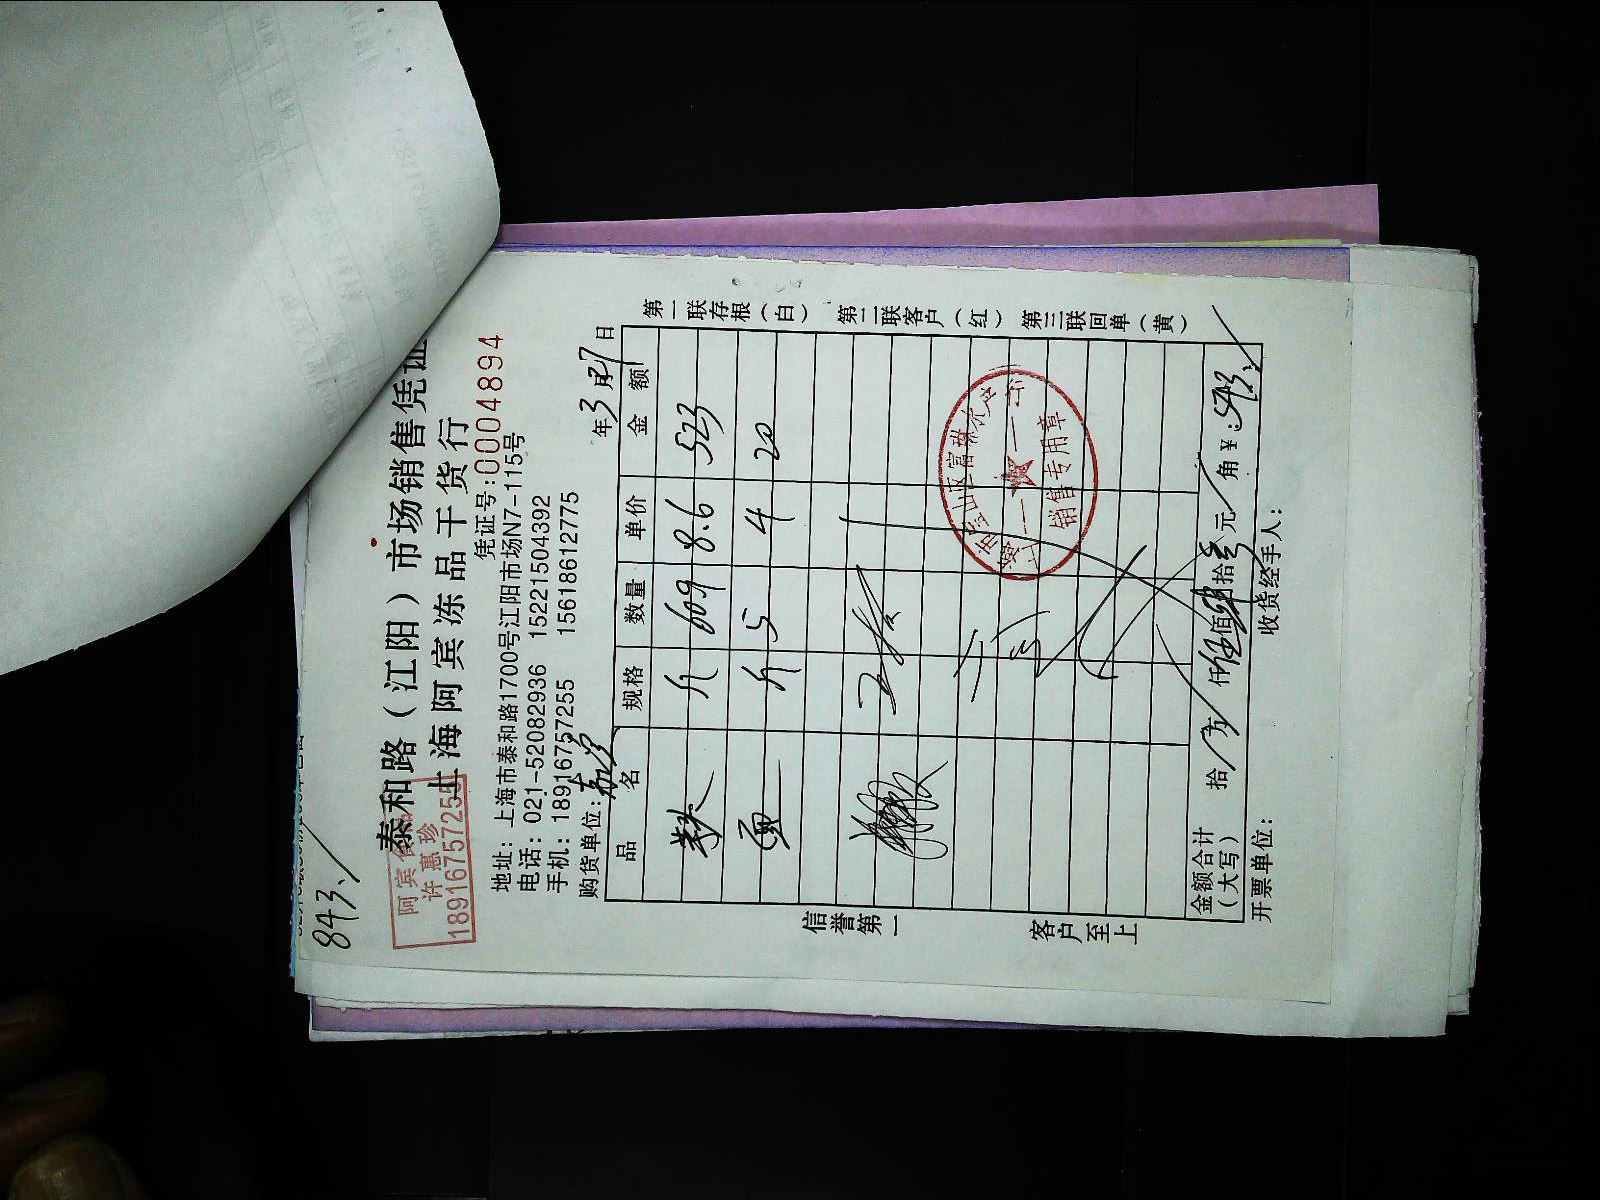 843.
阿宾
许惠珍
18916757255
泰和路（江阳）市场销售凭证
上海阿宾冻品干货行
凭证号:0004894
地址：上海市泰和路1700号江阳市场N7-115号
电话：021-52082936 15221504392
手机：18916757255 15618612775
购货单位：
年3月27日
品名 规格 数量 单价 金额
斤 609 8.6 523
斤 5 4 20
金额合计（大写） 拾 万 仟 伍佰 肆拾 叁元 角 ¥:543.
开票单位： 收货经手人：
信誉第一 客户至上
第一联存根（白） 第二联客户（红） 第三联回单（黄）
销售专用章